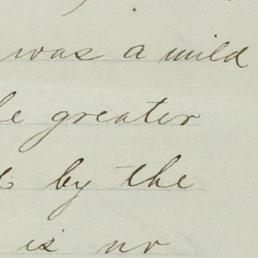 was a mild
greater
by the
is no